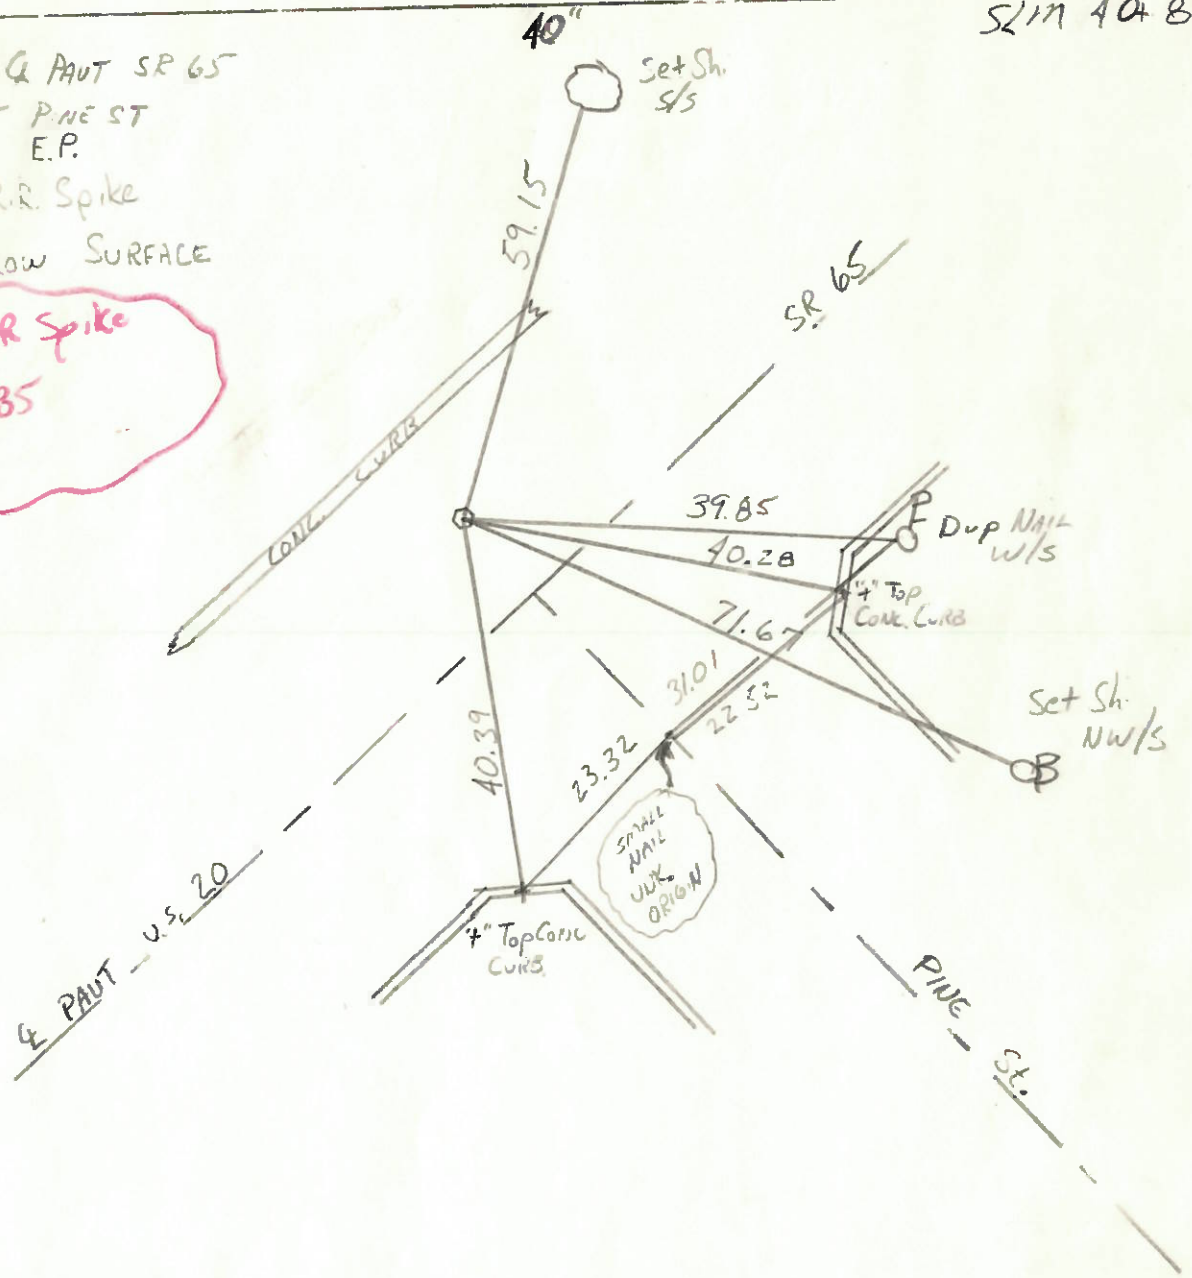 40"
SLM 40+8
℄ PAVT SR 65
PINE ST
E.P.
R.R. Spike
OW SURFACE
R Spike
35
Set Sh.
S/S
59.15
SR 65
CONC. CURB
39.85
Dup NAIL
W/S
40.28
"+" Top
CONC. CURB
71.67
31.01
22.52
Set Sh.
NW/S
40.39
23.32
SMALL
NAIL
UNK.
ORIGIN
"+" Top Conc
CURB
℄ PAVT U.S. 20
PINE St.